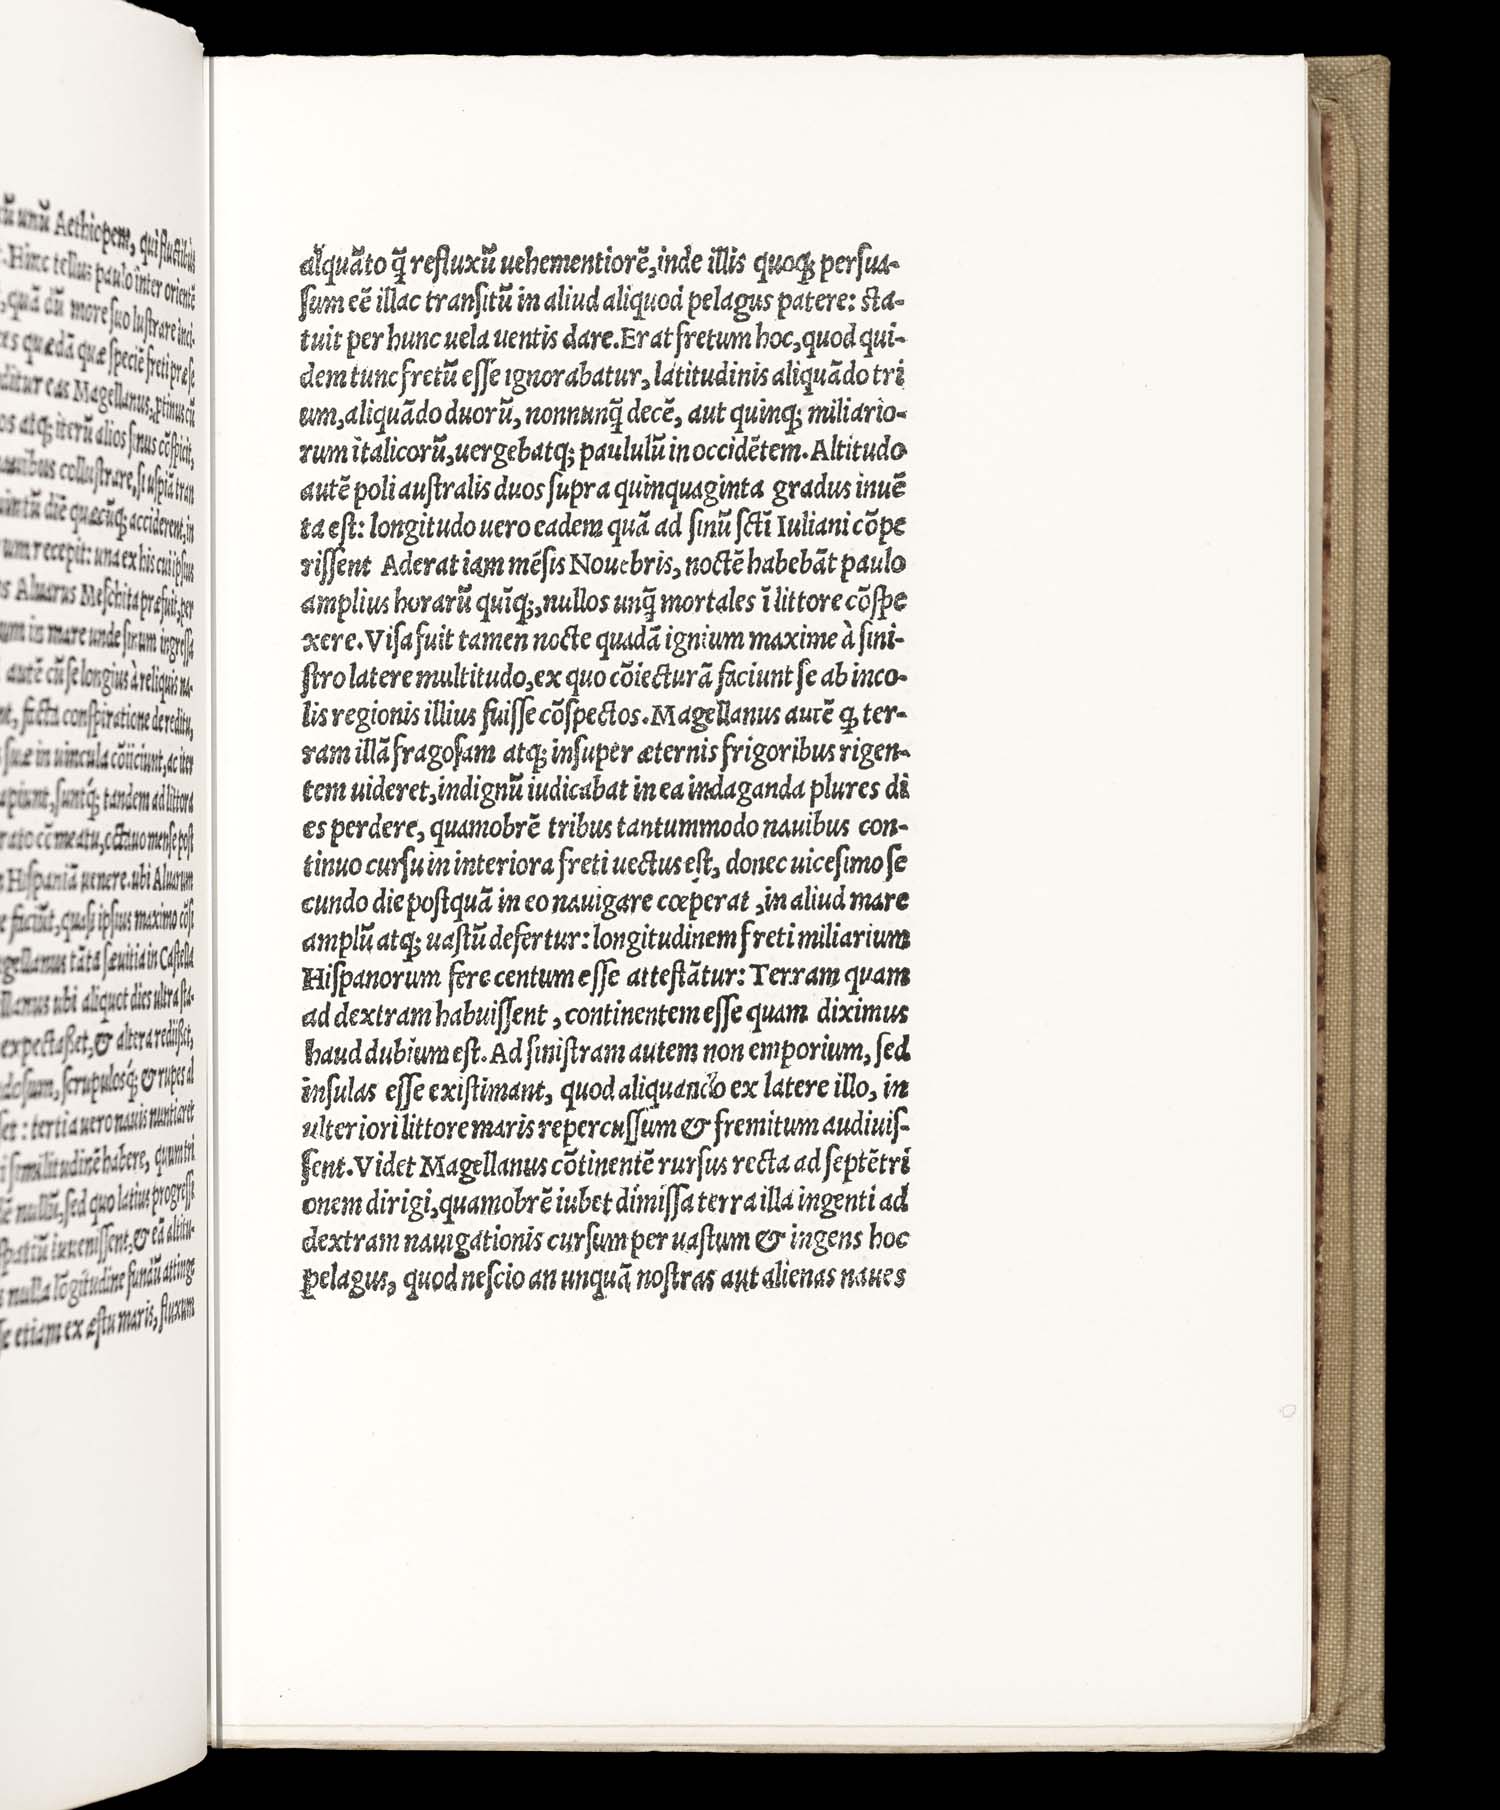 ũ unũ Aethiopem, qui fluctibus
. Hinc tellus paulo inter orientẽ
, quã dũ more suo lustrare inci-
es quædã quæ speciẽ freti præ se
ditur eas Magellanus, ꝓtinus cũ
os atq; iterũ alios sinus cõspicit,
nauibus collustrare, si uspiã tran
uintũ diẽ quæcũq; acciderent, in
rum recepit: una ex his cui ipsius
s Aluarus Meschita præfuit, per
um in mare unde sinum ingressa
autẽ cũ se longius à reliquis na-
nt, facta conspiratione de reditu,
suæ in uincula cõijciunt, ac iter
upiunt, suntq́; tandem ad littora
rato cõmeatu, octauo mense post
Hispaniã uenere. ubi Aluarum
e faciũt, quasi ipsius maximo cõsi
gellanus tãta sæuitia in Castella
llanus ubi aliquot dies ultra sta-
expectaßet, & altera redijßet,
dosum, scrupulosq́; & rupes al
set: tertia uero nauis nuntiaret
i similitudinẽ habere, quum tri
ẽ nullũ, sed quo latius progressi
spatiũ inuenissent, & eã altitu-
nulla lõgitudine fundũ attinge
se etiam ex æstu maris, fluxum
alquãto q̃ refluxũ uehementiorẽ, inde illis quoq; persua-
sum eẽ illac transitũ in aliud aliquod pelagus patere: sta-
tuit per hunc uela uentis dare. Erat fretum hoc, quod qui-
dem tunc fretũ esse ignorabatur, latitudinis aliquãdo tri
um, aliquãdo duorũ, nonnunq̃ decẽ, aut quinq; miliario-
rum italicorũ, uergebatq; paululũ in occidẽtem. Altitudo
autẽ poli australis duos supra quinquaginta gradus inuẽ
ta est: longitudo uero eadem quã ad sinũ sctĩ Iuliani cõpe
rissent Aderat iam mẽsis Nouebris, noctẽ habebãt paulo
amplius horarũ quĩq;, nullos unq̃ mortales ĩ littore cõspe
xere. Visa fuit tamen nocte quadã ignium maxime à sini-
stro latere multitudo, ex quo cõiecturã faciunt se ab inco-
lis regionis illius fuisse cõspectos. Magellanus autẽ ꝙ ter-
ram illã fragosam atq; insuper æternis frigoribus rigen-
tem uideret, indignũ iudicabat in ea indaganda plures di
es perdere, quamobrẽ tribus tantummodo nauibus con-
tinuo cursu in interiora freti uectus est, donec uicesimo se
cundo die postquã in eo nauigare cœperat , in aliud mare
amplũ atq; uastũ defertur: longitudinem freti miliarium
Hispanorum fere centum esse attestãtur: Terram quam
ad dextram habuissent , continentem esse quam diximus
haud dubium est. Ad sinistram autem non emporium, sed
insulas esse existimant, quod aliquando ex latere illo, in
ulteriori littore maris repercussum & fremitum audiuis-
sent. Videt Magellanus cõtinentẽ rursus recta ad septẽtri
onem dirigi, quamobrẽ iubet dimissa terra illa ingenti ad
dextram nauigationis cursum per uastum & ingens hoc
pelagus, quod nescio an unquã nostras aut alienas naues